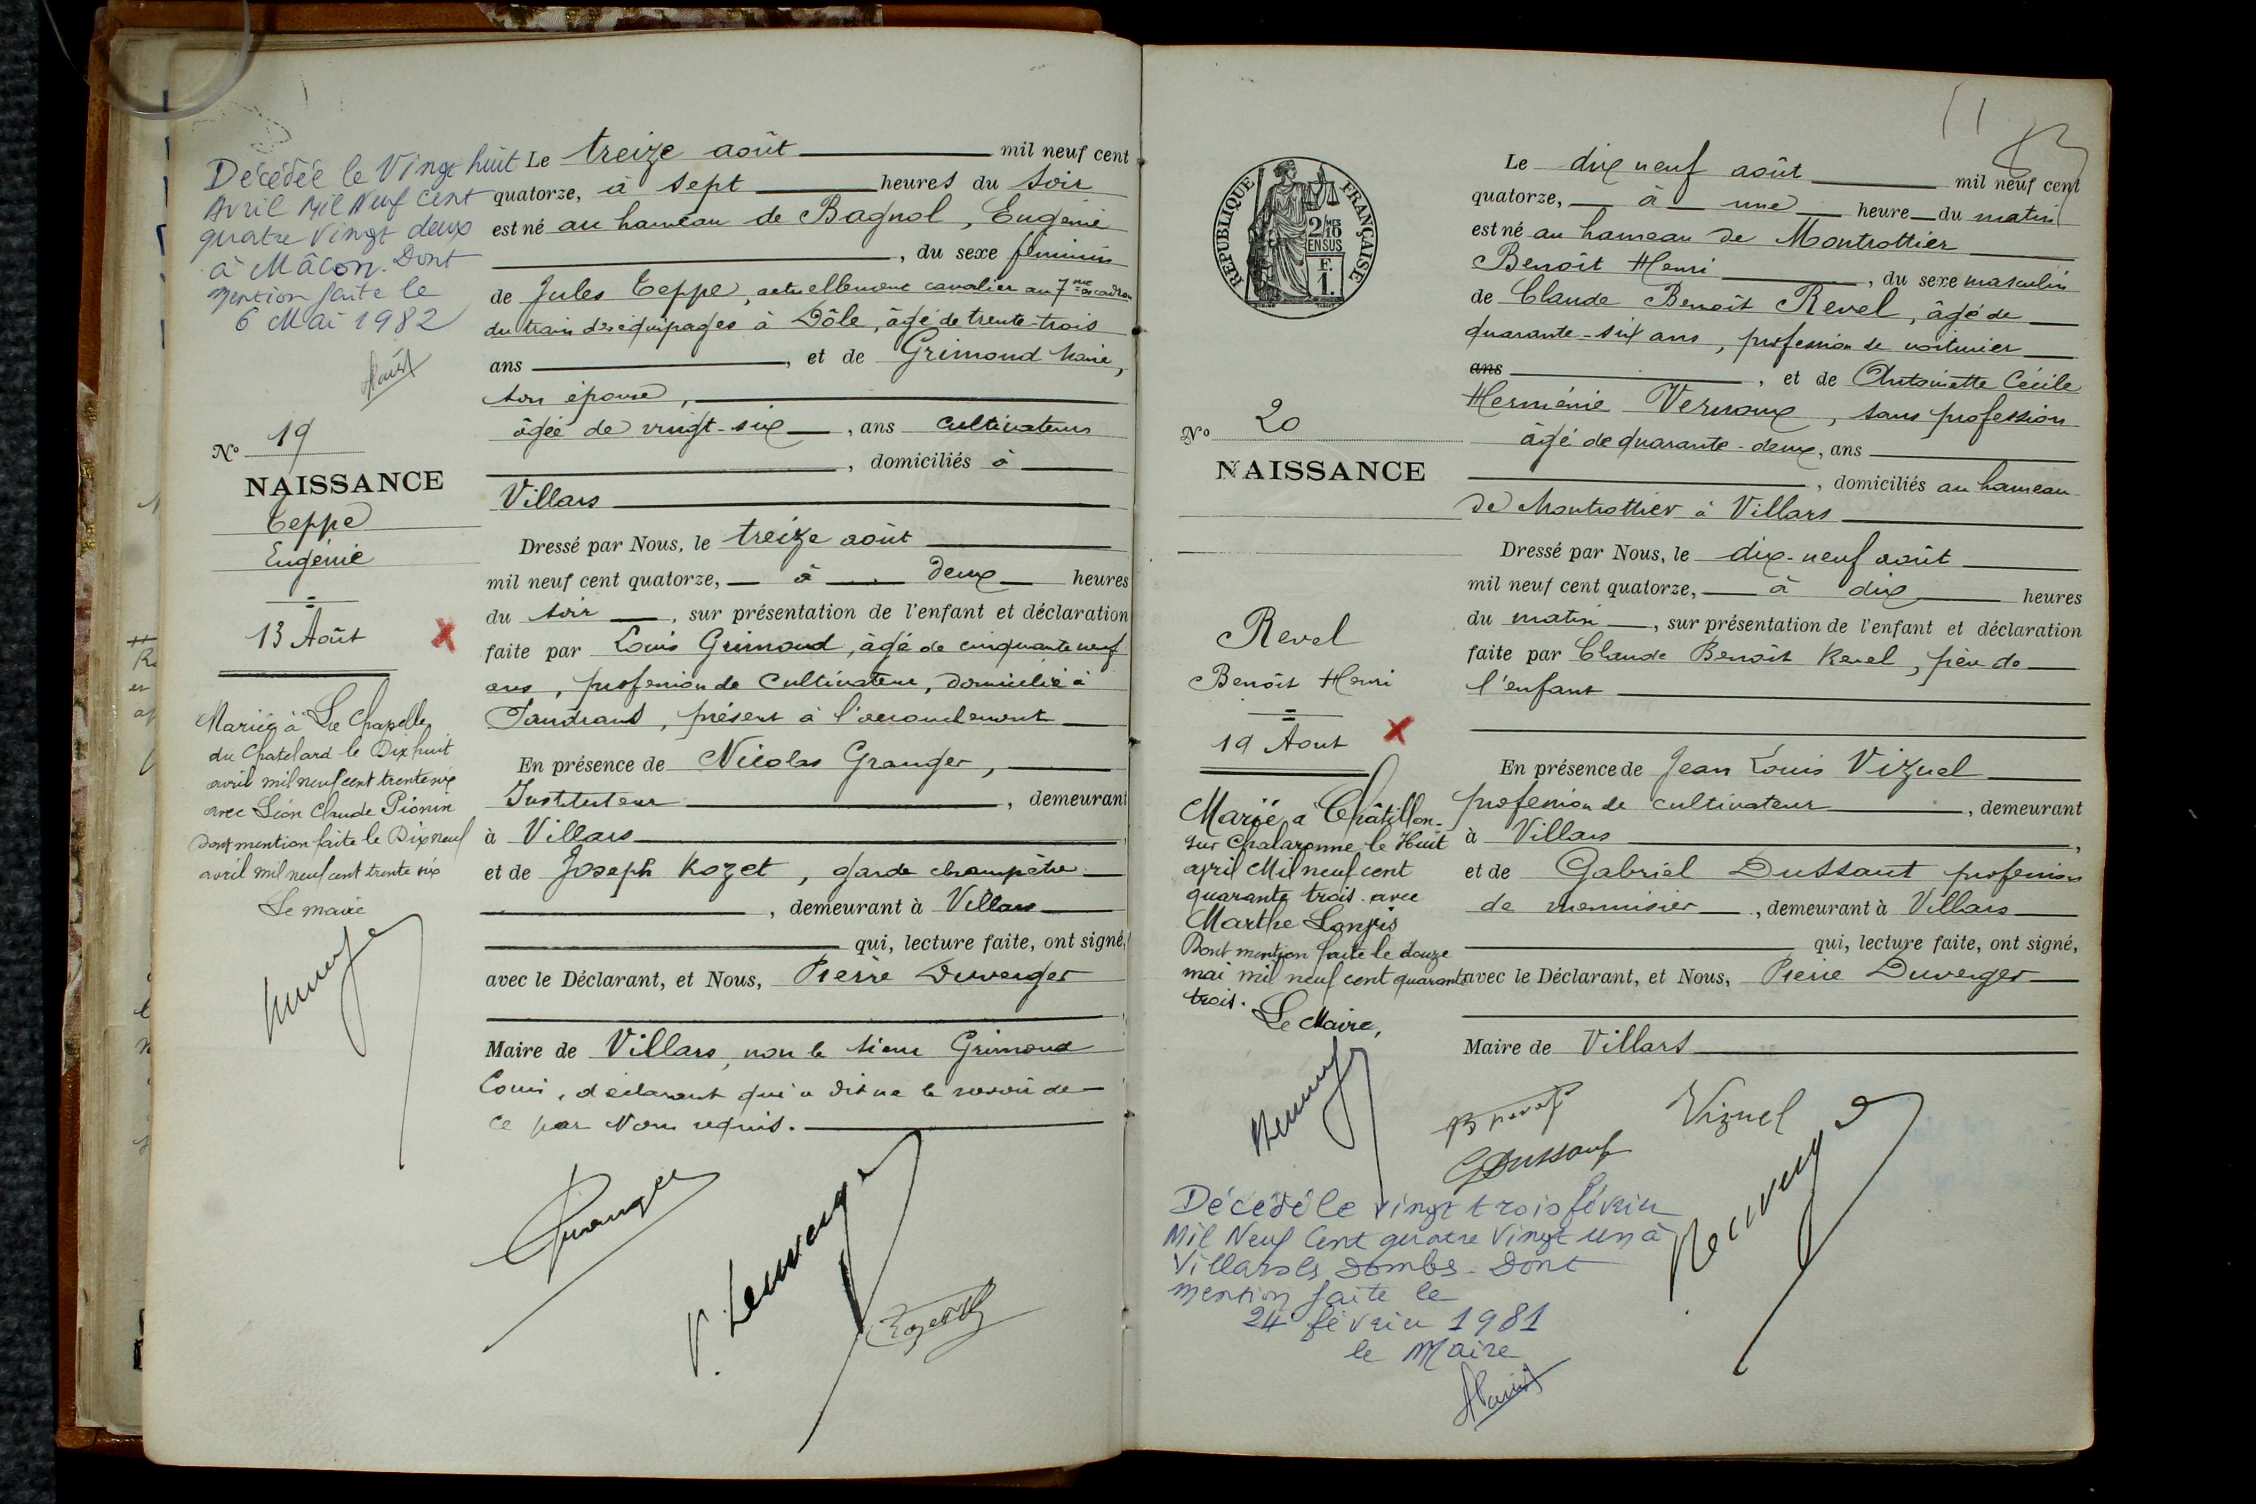 Décédée le Vingt huit
Avril Mil Neuf Cent
quatre Vingt deux
à Mâcon. Dont
mention faite le
6 Mai 1982
N° 19
NAISSANCE
Teppe
Eugénie
13 Août
Mariée à La Chapelle
du Chatelard le Dix huit
avril mil neuf cent trente six
avec Léon Claude Pionin
Dont mention faite le Dix neuf
avril mil neuf cent trente six
Le maire
Le treize août mil neuf cent
quatorze, à sept heures du soir
est né au hameau de Bagnol, Eugénie
, du sexe féminin
de Jules Teppe, actuellement cavalier au 7me escadron
du train des équipages à Dôle, âgé de trente-trois
ans , et de Grimond Marie,
son épouse,
âgée de vingt-six , ans cultivateurs
, domiciliés à
Villars
Dressé par Nous, le treize août
mil neuf cent quatorze, à deux heures
du soir , sur présentation de l'enfant et déclaration
faite par Louis Grimond, âgé de cinquante neuf
ans, profession de Cultivateur, domicilié à
Sandrans, présent à l'accouchement
En présence de Nicolas Granger,
Instituteur , demeurant
à Villars
et de Joseph Rozet, garde champêtre
, demeurant à Villars
qui, lecture faite, ont signé,
avec le Déclarant, et Nous, Pierre Duverger
Maire de Villars, non le sieur Grimond
Louis, déclarant qui a dit ne le savoir de
ce par Nous requis.
Granger
P. Duverger
Rozet
RÉPUBLIQUE FRANÇAISE
2/10MES
EN SUS
F.
1.
N° 20
NAISSANCE
Revel
Benoît Henri
19 Aout
Marié à Châtillon-
sur Chalaronne le Huit
avril Mil neuf cent
quarante trois avec
Marthe
Dont mention faite le douze
mai mil neuf cent quarante
trois.
Le Maire,
Le dix neuf août mil neuf cent
quatorze, à une heure du matin
est né au hameau de Montrottier
Benoît Henri , du sexe masculin
de Claude Benoît Revel, âgé de
quarante-six ans, profession de voiturier
ans , et de Antoinette Cécile
Herménie Vernoux, sans profession
âgé de quarante-deux, ans
, domiciliés au hameau
de Montrottier à Villars
Dressé par Nous, le dix-neuf août
mil neuf cent quatorze, à dix heures
du matin , sur présentation de l'enfant et déclaration
faite par Claude Benoît Revel, père de
l'enfant
En présence de Jean Louis Vizuel
profession de cultivateur , demeurant
à Villars ,
et de Gabriel Dussaut profession
de menuisier , demeurant à Villars
qui, lecture faite, ont signé,
avec le Déclarant, et Nous, Pierre Duverger
Maire de Villars
Vizuel
G Dussaut
Duverger
Décédé le vingt trois février
Mil Neuf Cent quatre Vingt un à
Villars les Dombes. Dont
mention faite le
24 février 1981
le Maire